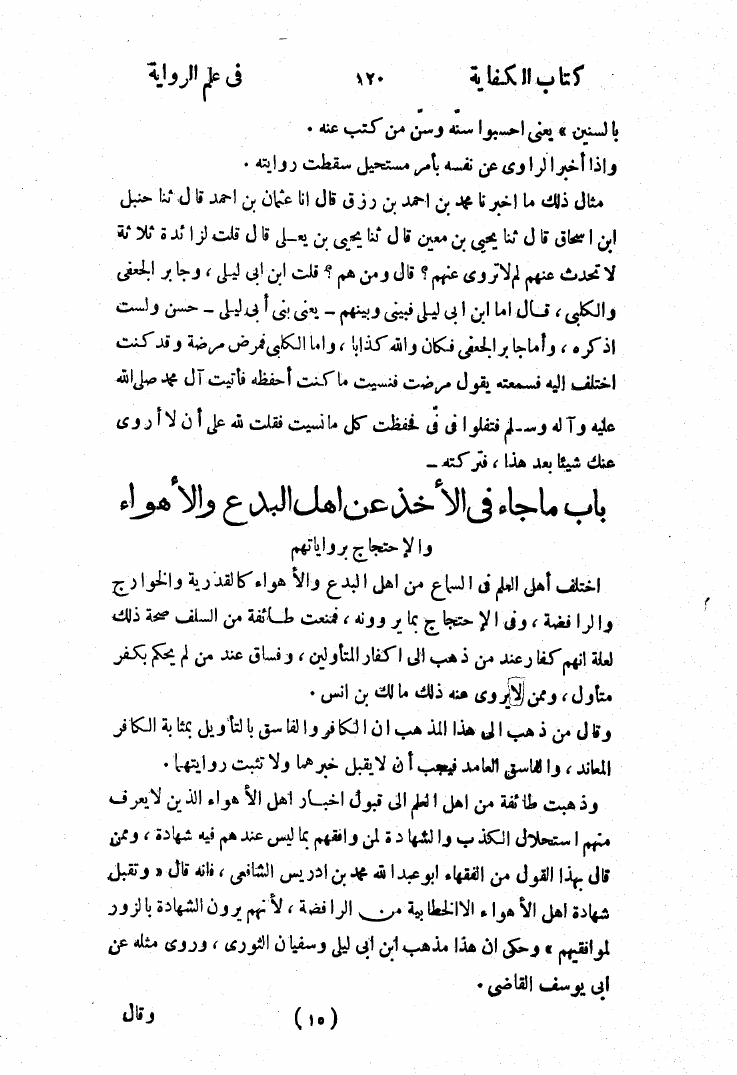 كتاب الكفاية ١٢٠ فى علم الرواية
بالسنين » يعنى احسبوا سنّه وسنّ من كتب عنه .
واذا أخبر الراوى عن نفسه بأمر مستحيل سقطت روايته .
مثال ذلك ما اخبرنا محمد بن احمد بن رزق قال انا عثمان بن احمد قال ثنا حنبل
ابن اسحاق قال ثنا يحيى بن معين قال ثنا يحيى بن يعلى قال قلت لزائدة ثلاثة
لا تحدث عنهم لم لا تروى عنهم ؟ قال ومن هم ؟ قلت ابن ابى ليلى ، وجابر الجعفى
والكلبى ، قال اما ابن ابى ليلى فبينى وبينهم - يعنى بنى أبى ليلى - حسن ولست
اذكره ، وأما جابر الجعفى فكان والله كذابا ، واما الكلبى فمرض مرضة وقد كنت
اختلف إليه فسمعته يقول مرضت فنسيت ما كنت أحفظه فأتيت آل محمد صلى الله
عليه وآله وسلم فتفلوا فى فىّ فحفظت كل ما نسيت فقلت لله على أن لا أروى
عنك شيئا بعد هذا ، فتركته -
باب ماجاء فى الأخذ عن اهل البدع والأهواء
والإحتجاج برواياتهم
اختلف أهل العلم فى السماع من اهل البدع والأهواء كالقدرية والخوارج
والرافضة ، وفى الإحتجاج بما يروونه ، فمنعت طائفة من السلف صحة ذلك
لعلة انهم كفار عند من ذهب الى اكفار المتأولين ، وفساق عند من لم يحكم بكفر
متأول ، وممن لا يروى عنه ذلك مالك بن انس .
وقال من ذهب الى هذا المذهب ان الكافر والفاسق بالتأويل بمثابة الكافر
المعاند ، والفاسق العامد فيجب أن لا يقبل خبرهما ولا تثبت روايتهما .
وذهبت طائفة من اهل العلم الى قبول اخبار اهل الأهواء الذين لا يعرف
منهم استحلال الكذب والشهادة لمن وافقهم بما ليس عندهم فيه شهادة ، وممن
قال بهذا القول من الفقهاء ابو عبد الله محمد بن ادريس الشافعى ، فانه قال « وتقبل
شهادة اهل الأهواء الا الخطابية من الرافضة ، لأنهم يرون الشهادة بالزور
لموافقيهم » وحكى ان هذا مذهب ابن ابى ليلى وسفيان الثورى ، وروى مثله عن
ابى يوسف القاضى .
(١٥) وقال